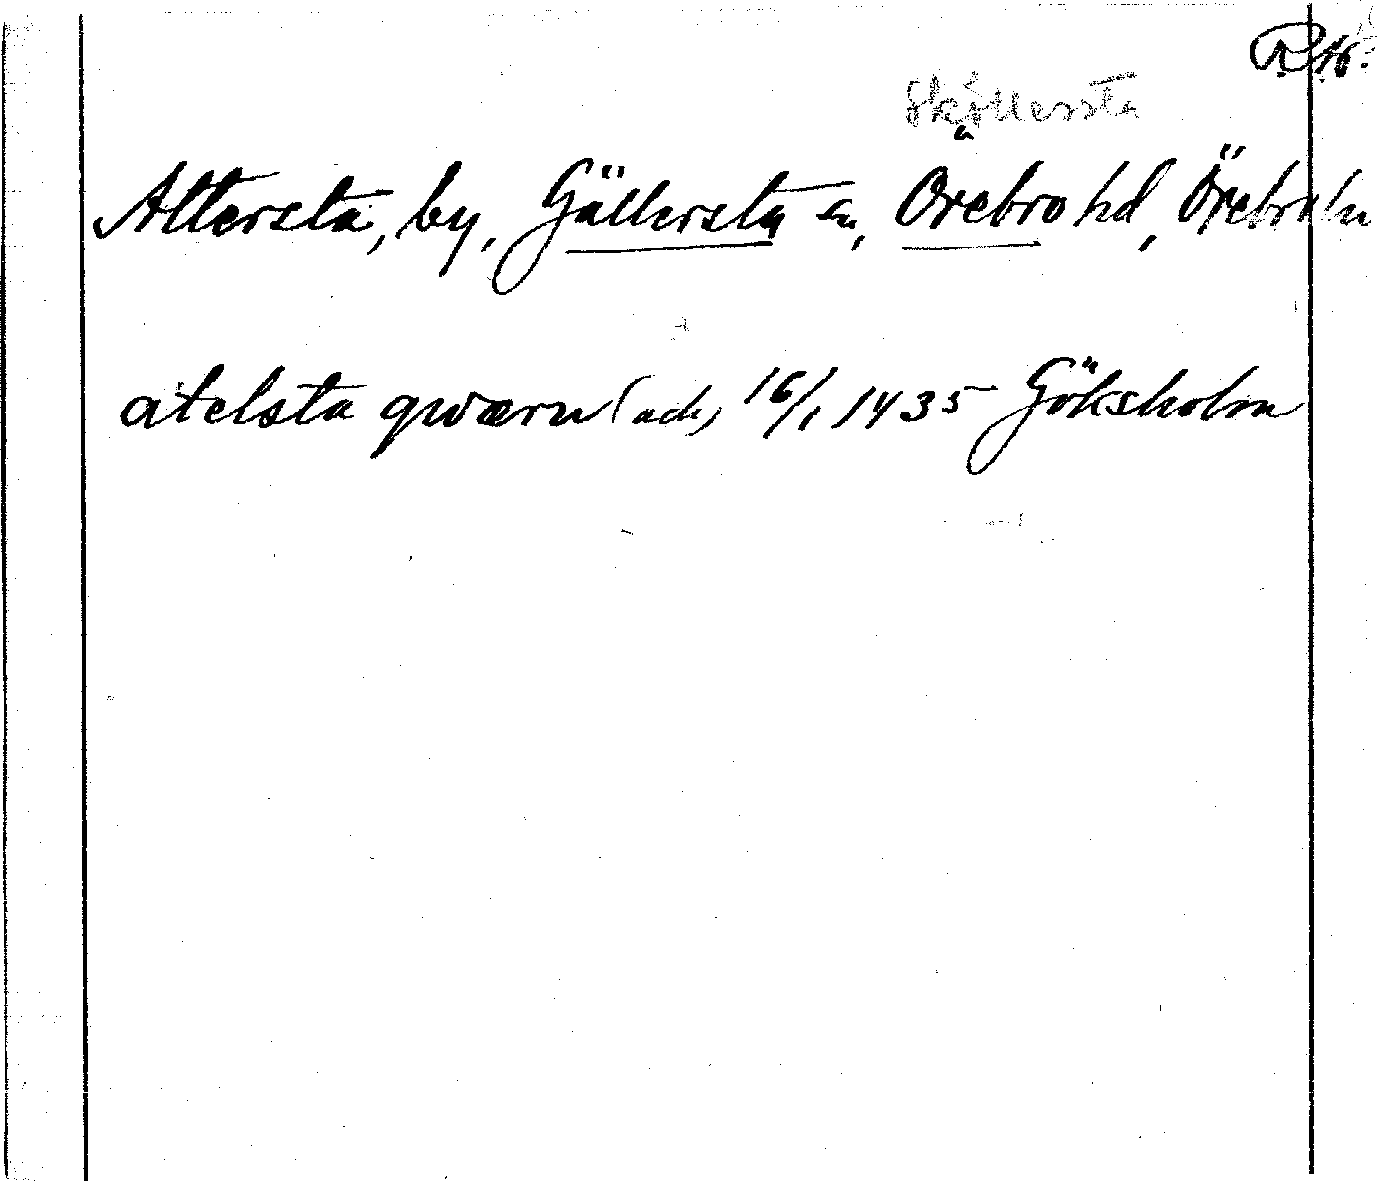 R 16.
Sköllersta
Attersta, by, Gällersta sn, Örebro hd, Örebro ln
atelsta qwærn (ack) 16/1 1435 Göksholm